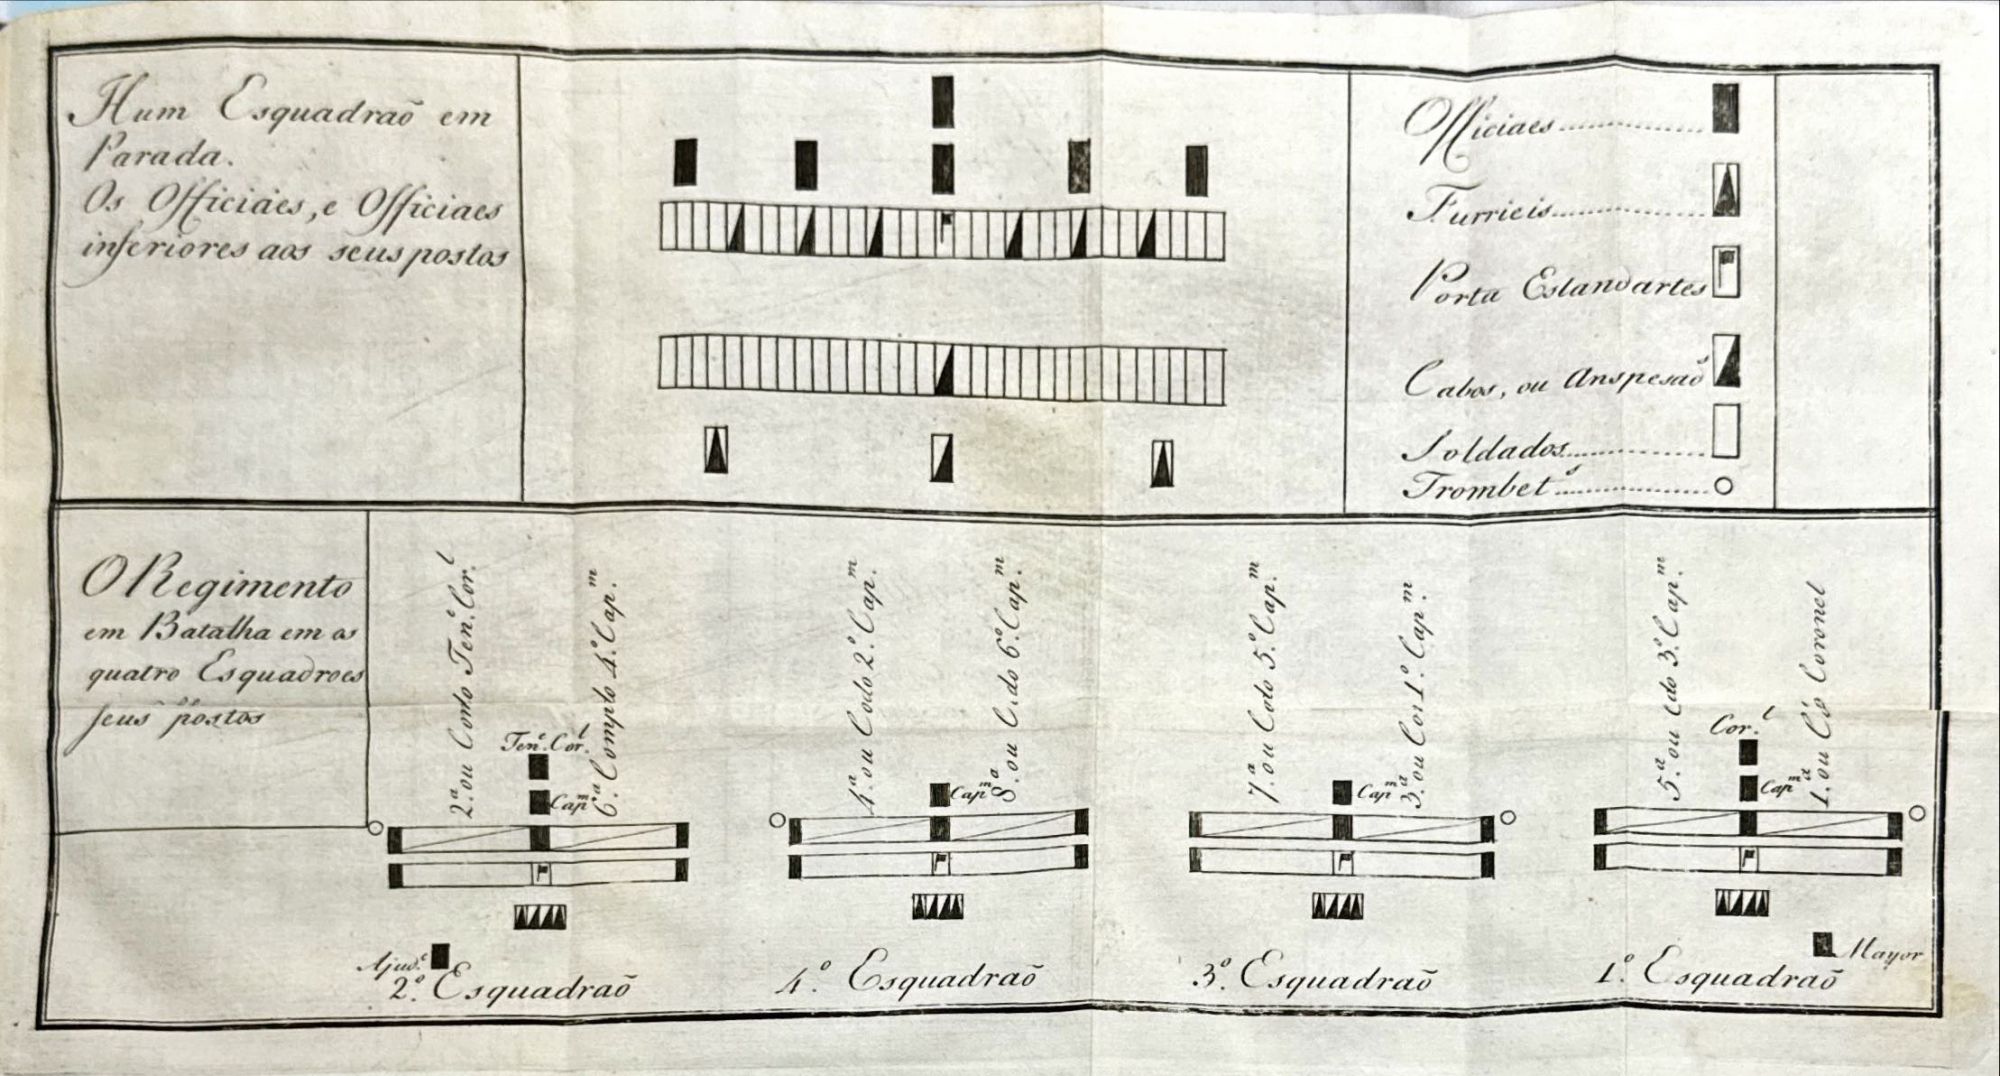 Hum Esquadraõ em
Parada.
Os Officiáes, e Officiaes
inferiores aos seus postos
Officiaes
Furrieis
Porta Estandartes
Cabos, ou Anspesaõs
Soldados
Trombet.s
O Regimento
em Batalha em os
quatro Esquadroes
seus postos
2.ª ou Cor do Ten.e Cor.l
Ten.e Cor.l
Cap.m
6.ª Comp 4.º Cap.m
4.ª ou C do 2.º Cap.m
Cap.m
8.ª ou C. do 6.º Cap.m
7.ª ou C do 5.º Cap.m
Cap.m
3.ª ou C 1.º Cap.m
5.ª ou C do 3.º Cap.m
Cor.l
Cap.m
1.ª ou C Coronel
Ajud.e
Mayor
2.º Esquadraõ
4.º Esquadraõ
3.º Esquadraõ
1.º Esquadraõ